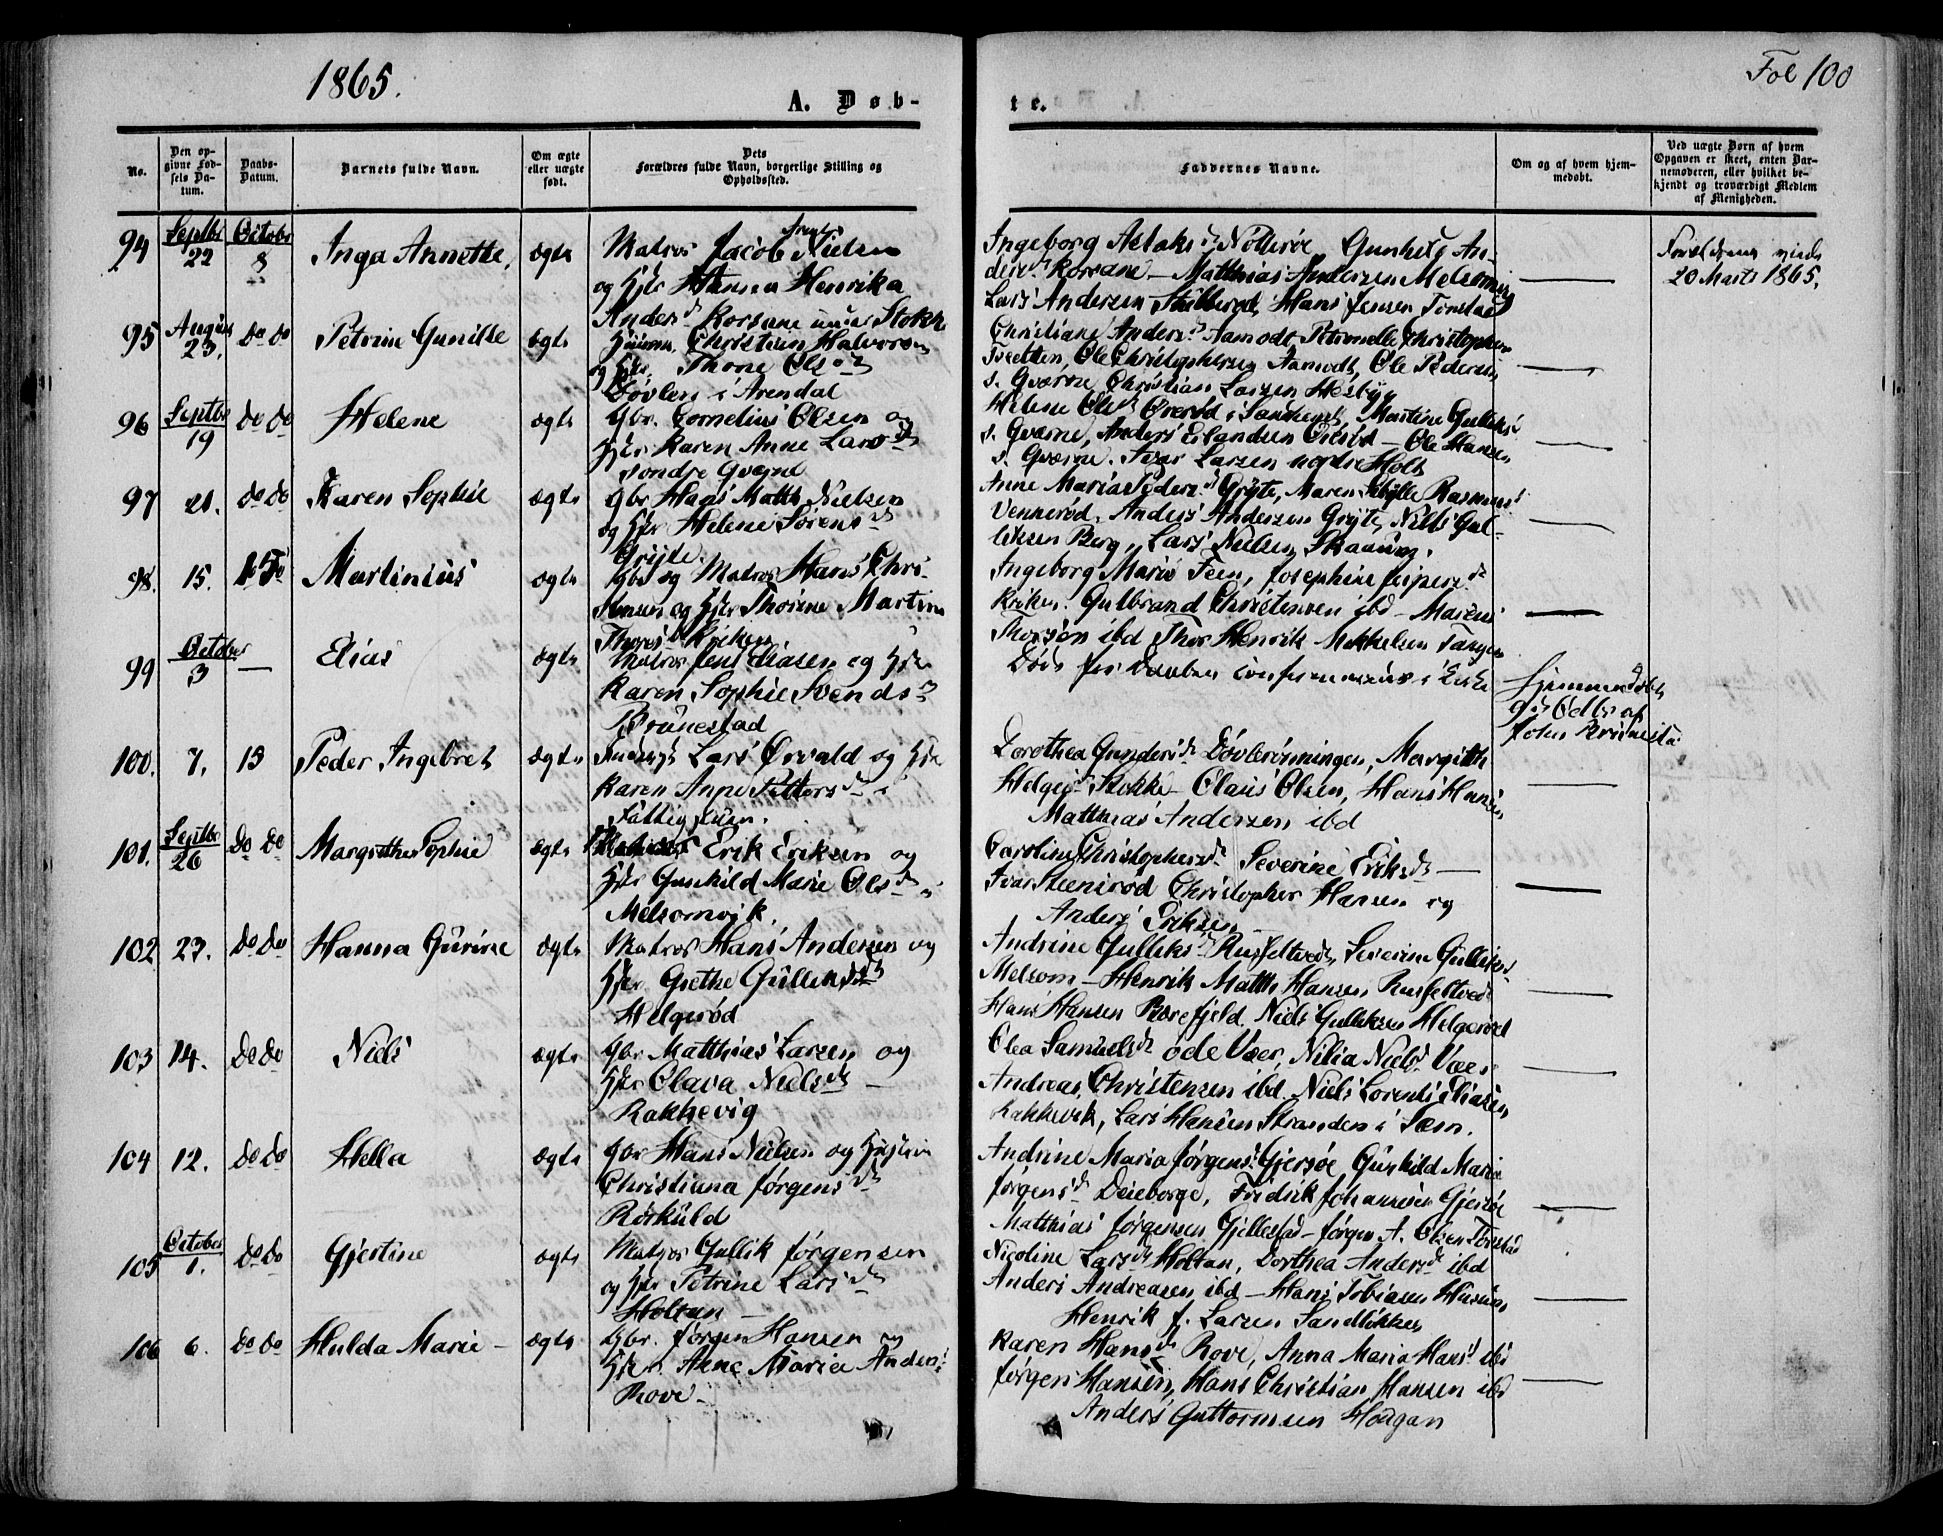 1865.
Fol 100
A. Døb-
te.
No.
Den op-
givne Fød-
sels Da-
tum.
Daabs-
Datum.
Barnets fulde Navn.
Om ægte
eller uægte
født.
Dets
Forældres fulde Navn, borgerlige Stilling og
Opholdssted.
Faddernes Navne.
Om og af hvem hjem-
medøbt.
Ved uægte Børn af hvem
Opgaven er skeet, enten Bar-
nemoderen, eller hvilket be-
kjendt og troværdigt Medlem
af Menigheden.
94 Septbr 22 October 8 Inga Annette, ægte
Matros Jacob Nielsen
og Hstr Hanna Henrika
Andersd Korsane under Stokke
Ingeborg Aslaksd Nøtterøe Gunhild An-
dersd Korsane – Matthias Andersen Melsomvig
Lars Andersen Stubberød, Hans Jensen Tønstad
20 Marts 1865.
95 August 23. do do Petrine Gunilde ægte
Christian Halvorsen
og Hstr Thone Olsd
Døvlen i Arendal
Christiane Andersd Aamodt, Petronelle Christophersd
Tveitten, Ole Christophersen Aamodt, Ole Pedersen
s. Gværne Christian Larsen Hesby
96 Septbr 19 do do Helene ægte
Gbr. Cornelius Olsen og
Hstr Karen Anne Larsd
søndre Gværne
Helene Olsd i Sandeherred, Martine Gulliksd
s. Gværne, Anders Erlandsen – Ole Hansen
s. Gværne. Ivar Larsen nordre Holt
97 21. do do Karen Sophie ægte
Gbr Hans Matth Nielsen
og Hstr Helene Sørensd
Gryte
Anne Maria Pedersd Gryte, Maren Sibylle Rasmusd
Vennerød, Anders Andersen Gryte, Niels Gul-
liksen Berg, Lars Nielsen Skaaum.
98. 15. Martinius ægte
Gbr og Matros Hans Chri-
stensen og Hstr Thorine Martine
Thorsd Kriken
Ingeborg Marie Feen, Josephine Jespersd
Kriken. Gulbrand Christensen ibd – Marens
Thorsøn ibd Thor Henrik Mikkelsen Tangen
99 October 3 — Elias ægte
Matros Jens Eliasen og Hstr
Karen Sophie Svendsd
Brunestad
Død før Daaben
Hjemmedøbt
af
100. 7. 13 Peder Ingebret ægte
Lars Ørvald og Hstr
Karen Anne Pettersd i
Fattighuset.
Dorothea Gundersd Døvlerønningen, Margith
Helgesd Stokke – Olaus Olsen, Hans Hansen
Matthias Andersen ibd
101. Septbr 26 do do Margrethe Sophie ægte
Matros Erik Eriksen og
Hstr Gunhild Marie Olsd i
Melsomvik.
Caroline Christophersd Severine Eriksd —
Ivar Steenirød Christopher Hansen og
Anders Eriksen
102 23. do do Hanna Gurine ægte
Matros Hans Andersen og
Hstr Grethe Gulliksd
Helgerød
Andrine Gulliksd Russeltvedt, Severine Gulliksd
Melsom – Henrik Matth Hansen Russeltvedt
Hans Hansen Borefjeld. Niels Gulliksen Helgerød
103 14. do do Niels ægte
Gbr Matthias Larsen og
Hstr Olava Nielsd –
Rakkevig
Olea Samuelsd ode Væer, Nilia Nielsd Væer
Andreas Christensen ibd. Niels Lorents Eliasen
Rakkevik, Lars Hansen Stranden i Sæm.
104 12. do do Hella ægte
Gbr Hans Nielsen og Hustru
Christiana Jørgensd
Rørkuld
Andrine Maria Jørgensd Gjersøe, Gunhild Marie
Jørgensd Deieborge, Fredrik Johannesen Gjersøe
Matthias Jørgensen Gjellestad – Jørgen A. Olsen Tønstad
105 October 1. do do Gjertine ægte
Matros Gullik Jørgensen
og Hstr Petrine Larsd
Holtan –
Nicoline Larsd Holtan, Dorthea Andersd ibd
Anders Andreasen ibd – Hans Tobiasen
Henrik J. Larsen Sandløkken
106 6. do do Hulda Marie – ægte
Gbr. Jørgen Hansen og
Hstr Anne Maria Andersd
Rove –
Karen Hansd Rove, Anna Maria Hansd ibd
Jørgen Hansen, Hans Christian Hansen ibd
Anders Guttormsen Hougan